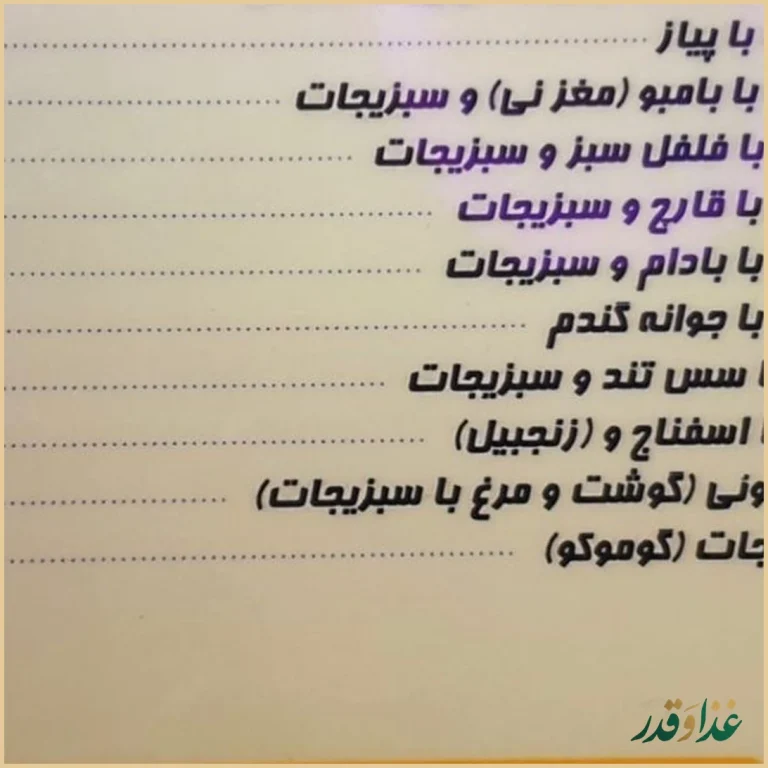 با پیاز
با بامبو (مغز نی) و سبزیجات
با فلفل سبز و سبزیجات
با قارچ و سبزیجات
با بادام و سبزیجات
با جوانه گندم
سس تند و سبزیجات
اسفناج و (زنجبیل)
(گوشت و مرغ با سبزیجات)
(گوموکو)
غذا و قدر